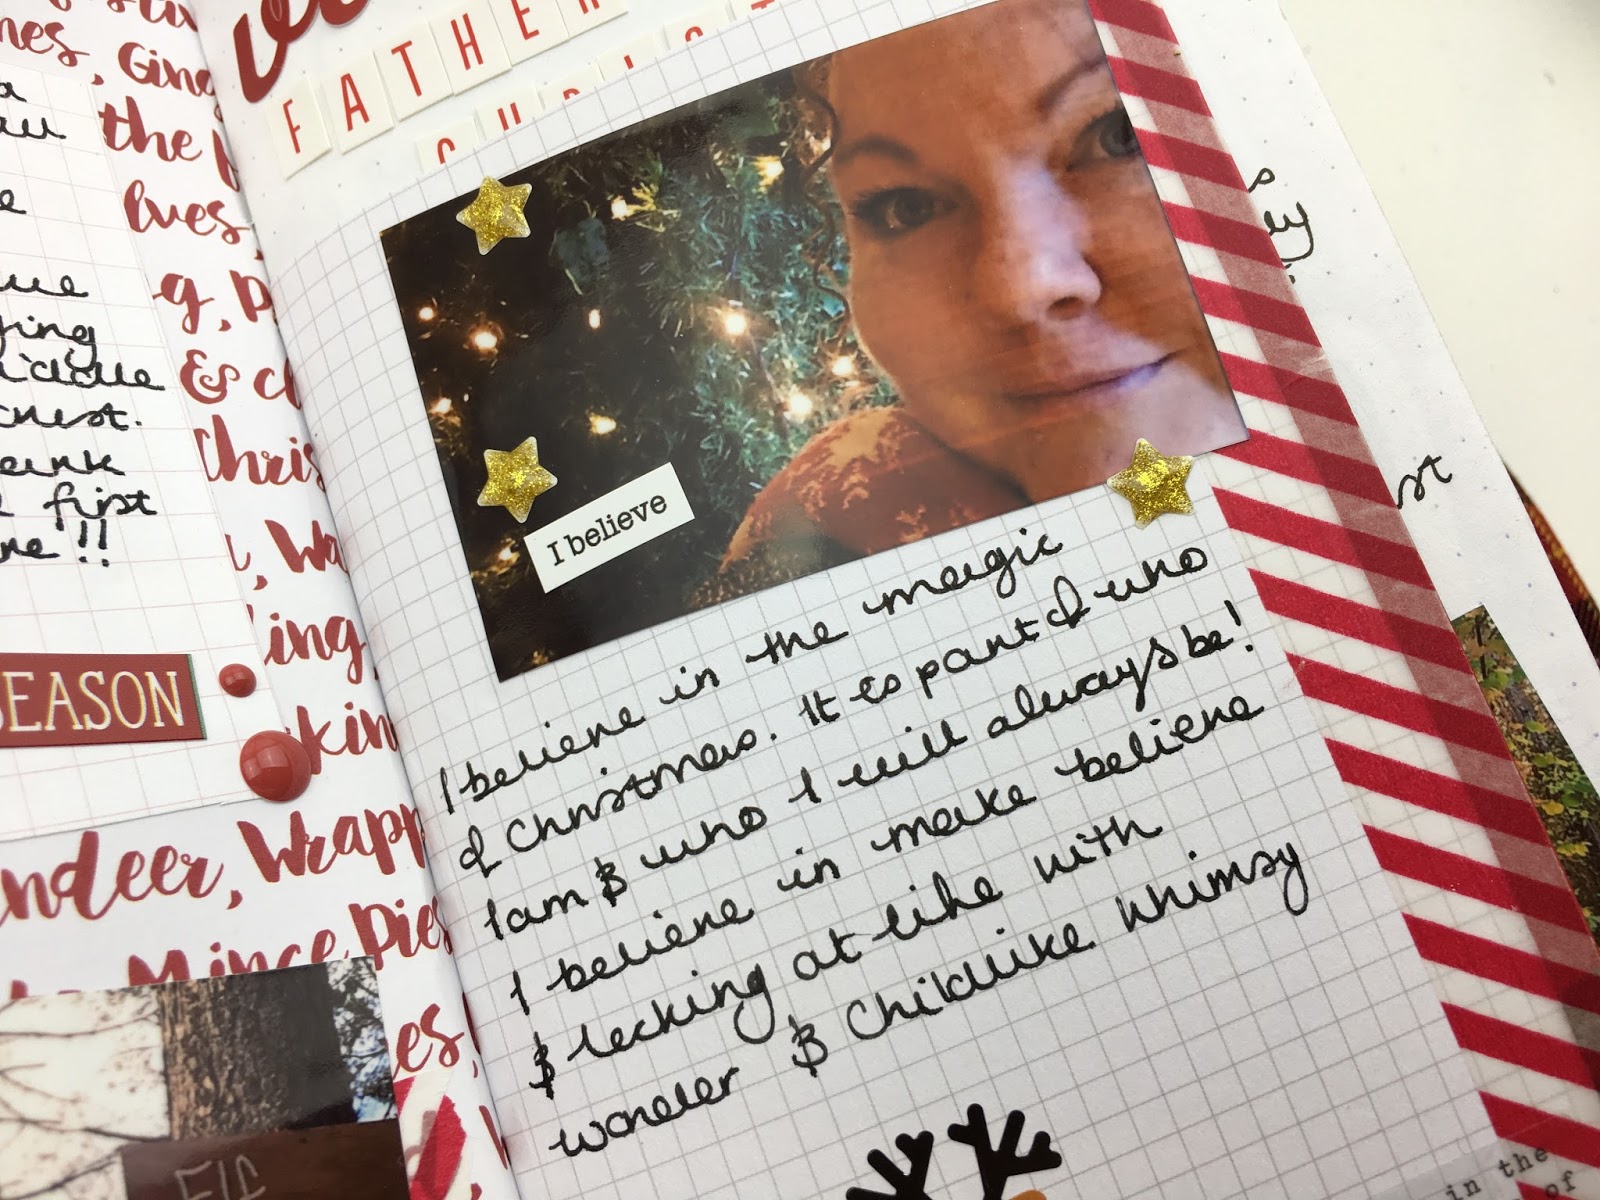 nes, Ging
the
lves,
g, P
& c
Chris
, Wa
ling,
kin
ndeer, Wrapp
Mince Pies
es,
a
e
ue
ying
iddle
chest.
first
me!!
EASON
FATHER
CHRIST
I believe
I believe in the magic
of Christmas. It is part of who
I am & who I will always be!
I believe in make believe
& looking at life with
wonder & childlike whimsy
ELF
in the
of
st